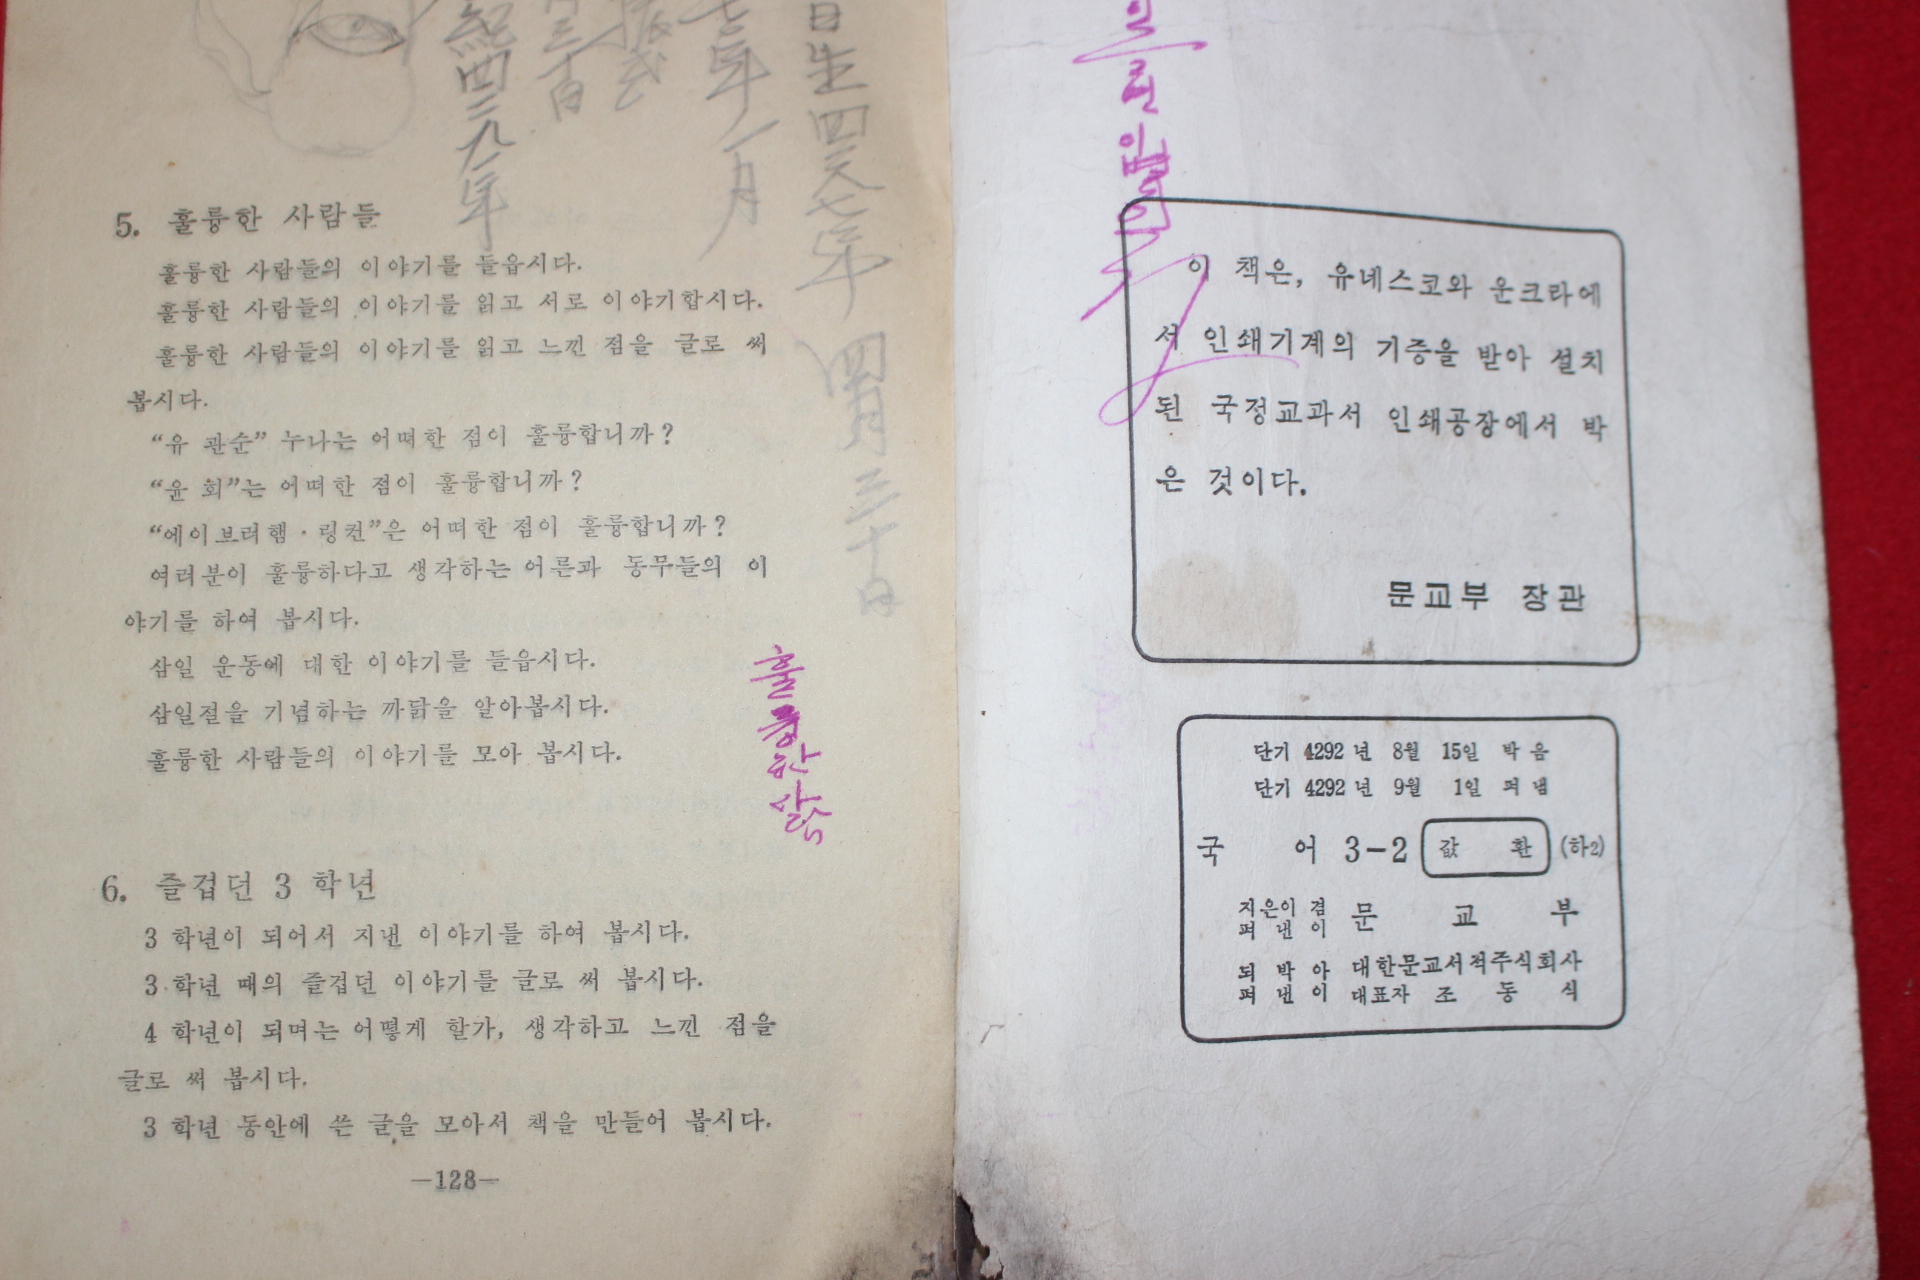 5. 훌륭한 사람들
훌륭한 사람들의 이야기를 들읍시다.
훌륭한 사람들의 이야기를 읽고 서로 이야기합시다.
훌륭한 사람들의 이야기를 읽고 느낀 점을 글로 써
봅시다.
“유 관순” 누나는 어떠한 점이 훌륭합니까?
“윤 회”는 어떠한 점이 훌륭합니까?
“에이브러햄·링컨”은 어떠한 점이 훌륭합니까?
여러분이 훌륭하다고 생각하는 어른과 동무들의 이
야기를 하여 봅시다.
삼일 운동에 대한 이야기를 들읍시다.
삼일절을 기념하는 까닭을 알아봅시다.
훌륭한 사람들의 이야기를 모아 봅시다.
6. 즐겁던 3 학년
3 학년이 되어서 지낸 이야기를 하여 봅시다.
3 학년 때의 즐겁던 이야기를 글로 써 봅시다.
4 학년이 되며는 어떻게 할가, 생각하고 느낀 점을
글로 써 봅시다.
3 학년 동안에 쓴 글을 모아서 책을 만들어 봅시다.
—128—
日生四二八七年 四月三十日
年一月
三十日
紀四二九一年
이 책은, 유네스코와 운크라에
서 인쇄기계의 기증을 받아 설치
된 국정교과서 인쇄공장에서 박
은 것이다.
문교부 장관
단기 4292년 8월 15일 박음
단기 4292년 9월 1일 펴냄
국어 3-2 값 환 (하2)
지은이 겸
펴낸이 문교부
되박아 대한문교서적주식회사
펴낸이 대표자 조동식